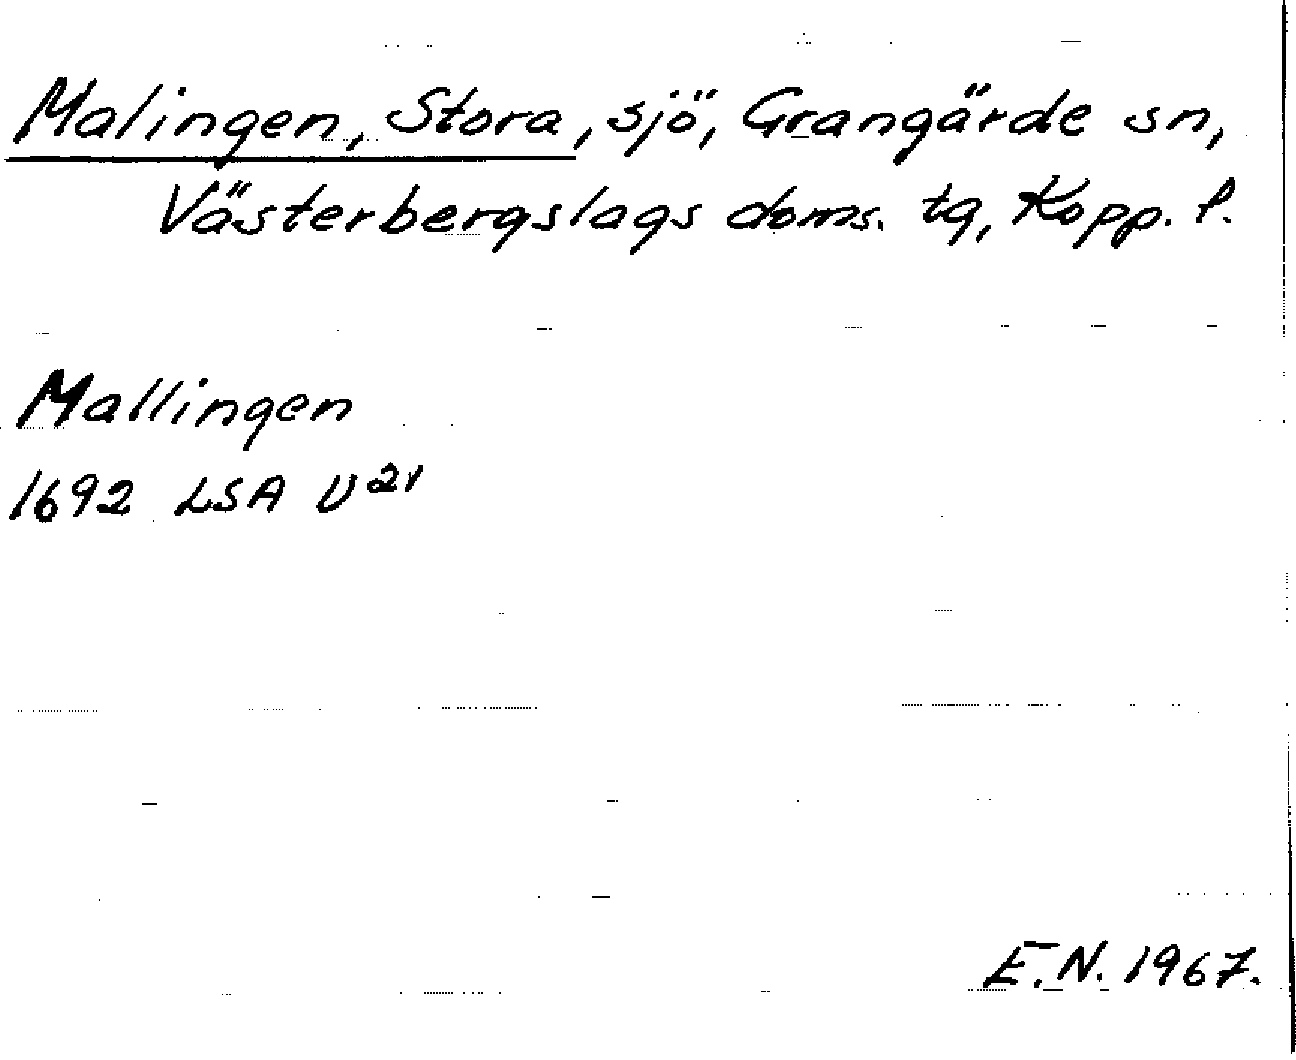 Malingen, Stora, sjö, Grangärde sn,
Västerbergslags doms. tg, Kopp. l.
Mallingen
1692 LSA U²¹
E.N. 1967.